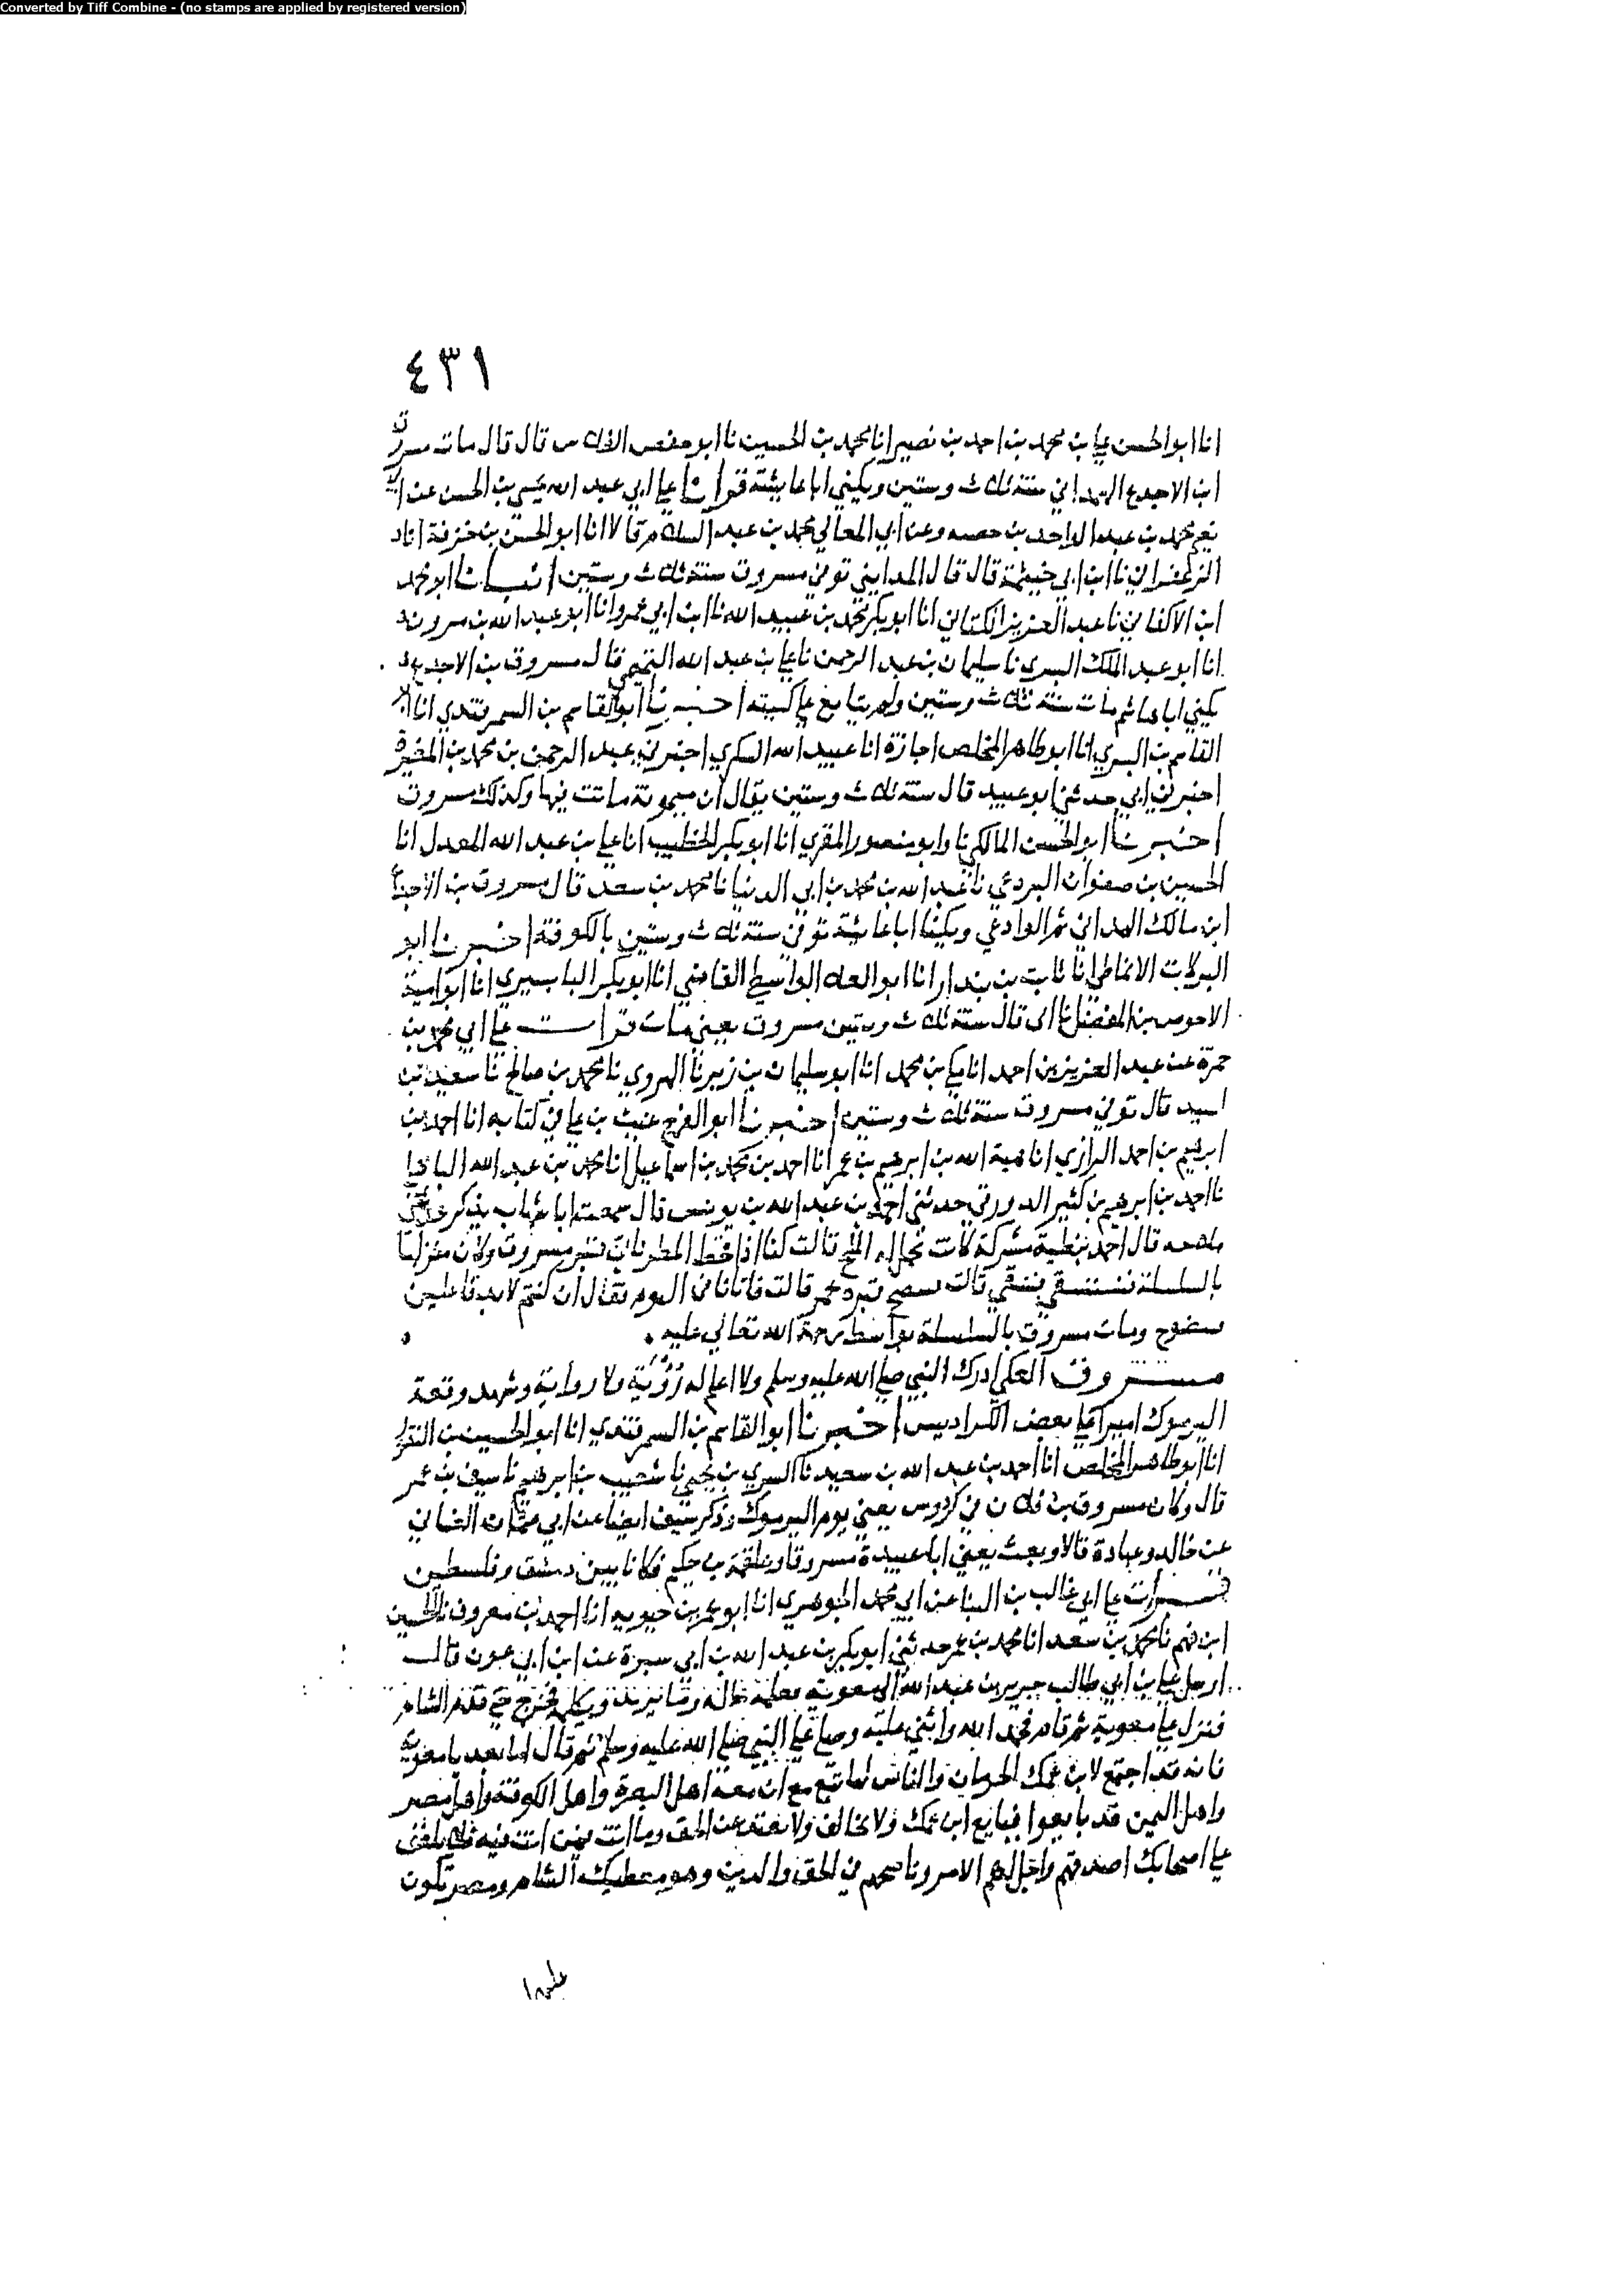 Converted by Tiff Combine - (no stamps are applied by registered version)
٤٣١
انا ابو الحسن علي بن محمد بن احمد بن نصير انا محمد بن الحسين نا ابو حفص الفلاس قال قال مات مسروق
ابن الاجدع الهمداني سنة ثلاث وستين ويكني ابا عايشة قرانا علي ابي عبد الله يحيى بن الحسن عن ابي
نعيم محمد بن عبد الواحد بن وعن ابي المعالي محمد بن عبد السلام قالا انا ابو الحسن بن خزفة انا
الزعفراني نا ابن ابي خيثمة قال قال المدايني توفي مسروق سنة ثلاث وستين انبانا ابو محمد
ابن الاكفاني نا عبد العزيز الكتاني انا ابو بكر محمد بن عبيد الله نا ابن ابي عمرو انا ابو عبد الله بن مروان
انا ابو عبد الملك البسري نا سليمان بن عبد الرحمن نا علي بن عبد الله التميمي قال مسروق بن الاجدع
يكني ابا هاشم مات سنة ثلاث وستين ولم يتابع علي كنيته اخبرنا ابو القاسم بن السمرقندي انا ابو
القاسم بن البسري انا ابو طاهر المخلص اجازة انا عبيد الله السكري اخبرني عبد الرحمن بن محمد بن المغيرة
اخبرني ابي حدثني ابو عبيد قال سنة ثلاث وستين يقال ان ميمونة ماتت فيها وكذلك مسروق
اخبرنا ابو الحسن المالكي نا وابو منصور المقري انا ابو بكر الخطيب انا علي بن عبد الله المعدل انا
الحسين بن صفوان البردعي نا عبد الله بن محمد بن ابي الدنيا نا محمد بن سعد قال مسروق بن الاجدع
ابن مالك الهمداني ثم الوادعي ويكنا ابا عايشة توفي سنة ثلاث وستين بالكوفة اخبرنا ابو
البركات الانماطي انا ثابت بن بندار انا ابو العلا الواسطي القاضي انا ابو بكر البابسيري انا ابو امية
الاحوص بن المفضل نا ابي قال سنة ثلاث وستين مسروق يعني مات قرات علي ابي محمد بن
حمزة عن عبد العزيز بن احمد انا مكي بن محمد انا ابو سليمان بن زبر نا الهروي نا محمد بن صالح نا سعيد بن
اسيد قال توفي مسروق سنة ثلاث وستين اخبرنا ابو الفرج غيث بن علي في كتابه انا احمد بن
ابرهيم بن احمد الرازي انا هبة الله بن ابرهيم بن عمر انا احمد بن محمد بن اسماعيل انا محمد بن عبد الله
نا احمد بن ابرهيم بن كثير الدورقي حدثني احمد بن عبد الله بن يونس قال سمعت ابا شهاب يذكر
قال احمد نبطية مشركة كانت تحمل له الملح قالت كنا اذا قحط المطر ناتي قبر مسروق وكان منزلها
بالسلسلة فنستسقي فنسقي قالت قبره بخمر قالت فاتانا في النوم فقال ان كنتم لا بد فاعلين
فبنضوح ومات مسروق بالسلسلة بواسط رحمة الله تعالي عليه .
مسروق العكي ادرك النبي صلي الله عليه وسلم ولا اعلم له رؤية ولا رواية وشهد وقعة
اليرموك اميرا علي بعض الكراديس اخبرنا ابو القاسم بن السمرقندي انا ابو الحسين بن النقور
انا ابو طاهر المخلص انا احمد بن عبد الله بن سعيد نا السري بن يحيى نا شعيب بن ابرهيم نا سيف بن عمر
قال وكان مسروق بن فلان في كردوس يعني يوم اليرموك وذكر سيف ايضا عن ابي عثمان الغساني
عن خالد وعبادة قالا وبعث يعني ابا عبيدة مسروقا وعلقمة بن حكيم فكانا بين دمشق وفلسطين
قرات علي ابي غالب بن البنا عن ابي محمد الجوهري انا ابو عمر بن حيويه انا احمد بن معروف نا الحسين
ابن فهم نا محمد بن سعد انا محمد بن عمر حدثني ابو بكر بن عبد الله بن ابي سبرة عن ابن ابي عون قال
ارسل علي بن ابي طالب جرير بن عبد الله الي معوية يعلمه حاله وما يريد ويكلمه فخرج حتي قدم الشام
فنزل علي معوية ثم قام فحمد الله واثني عليه وصلي علي النبي صلي الله عليه وسلم ثم قال اما بعد يا معوية
فانه قد اجتمع لابن عمك الحرمان والناس لهما تبع مع ان معه اهل البصرة واهل الكوفة واهل مصر
واهل اليمن قد بايعوا فبايع ابن عمك ولا تخالف ولا عن الحق وما انت فيه
علي اصحابك اصدقهم الامر وناصحهم في الحق والدين وهو معطيك الشام ومصر تكون